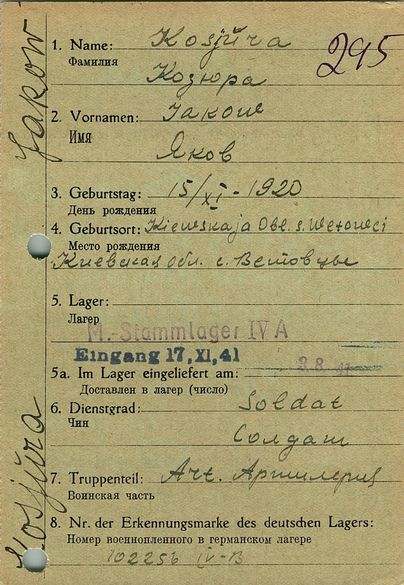 Jakow
Kosjŭra
295
1. Name: Kosjŭra
Фамилия
Козюра
2. Vornamen: Jakow
Имя
Яков
3. Geburtstag: 15/XI-1920
День рождения
4. Geburtsort: Kiewskaja Obl. s. Wetowci
Место рождения
Киевская обл. с. Ветовцы
5. Lager:
Лагер
M.-Stammlager IV A
Eingang 17, XI, 41
5a. Im Lager eingeliefert am:
Доставлен в лагер (число)
6. Dienstgrad: Soldat
Чин
Солдат
7. Truppenteil: Art. Артилерия
Воинская часть
8. Nr. der Erkennungsmarke des deutschen Lagers:
Номер военнопленного в германском лагере
102256 IV-B